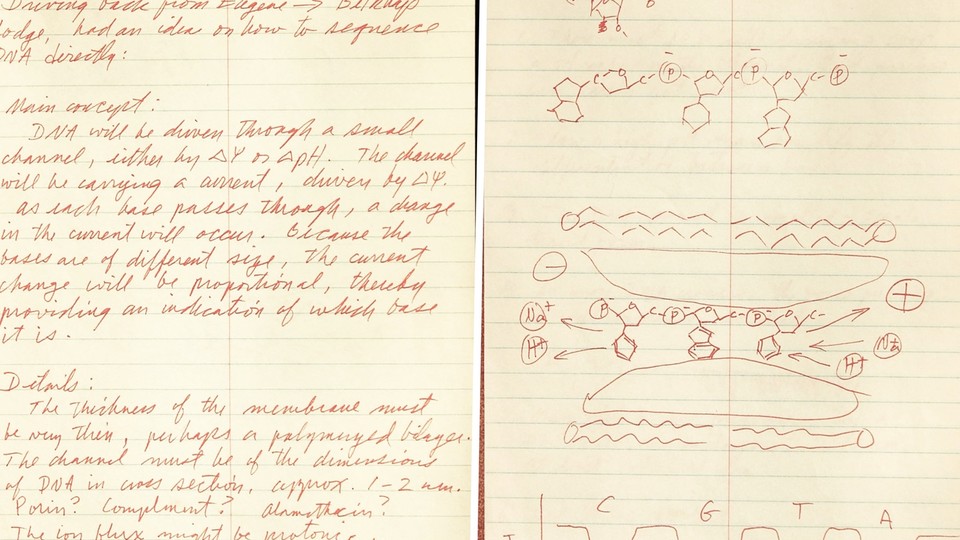 Driving back from Eugene → Belknap
lodge, had an idea on how to sequence
DNA directly:
Main concept:
DNA will be driven through a small
channel, either by ΔΨ or ΔpH. The channel
will be carrying a current, driven by ΔΨ.
as each base passes through, a change
in the current will occur. Because the
bases are of different size, the current
change will be proportional, thereby
providing an indication of which base
it is.
Details:
The thickness of the membrane must
be very thin, perhaps a polymerized bilayer.
The channel must be of the dimensions
of DNA in cross section, approx. 1-2 nm.
Porin? Compliment? Alamethicin?
The ion flux might be protonic,
O
O.
C O C - P C P O C - P
-
+
Na+ P C - P - C - P - C -
H+ Na+
H+
C G T A
I